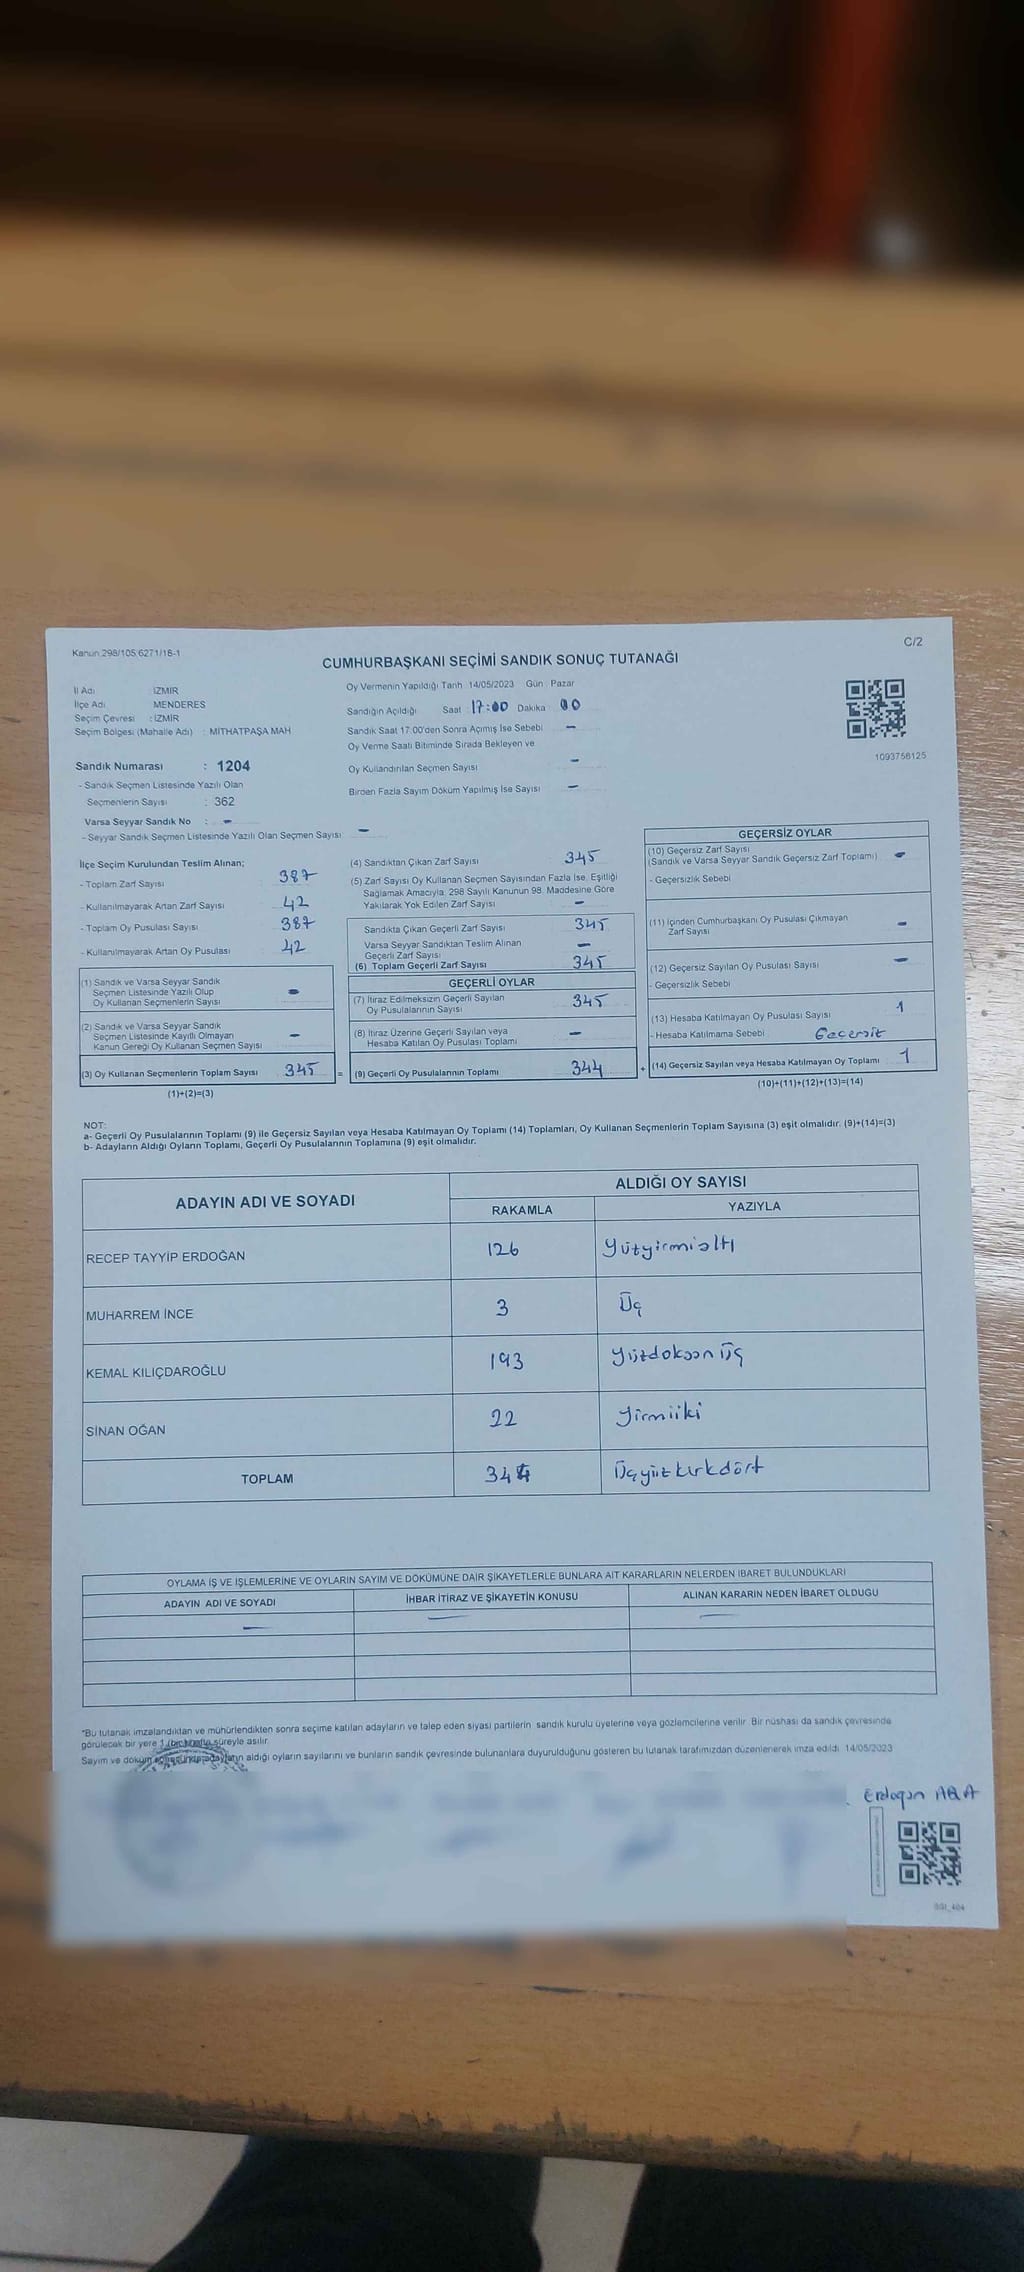 Kanun:298/105,6271/16-1
C/2
CUMHURBAŞKANI SEÇİMİ SANDIK SONUÇ TUTANAĞI
İl Adı İZMİR
İlçe Adı MENDERES
Seçim Çevresi : İZMİR
Seçim Bölgesi (Mahalle Adı) : MİTHATPAŞA MAH
Oy Vermenin Yapıldığı Tarih 14/05/2023 Gün : Pazar
Sandığın Açıldığı Saat 17:00 Dakika 00
Sandık Saat 17:00'den Sonra Açımış İse Sebebi -
Oy Verme Saati Bitiminde Sırada Bekleyen ve
Oy Kullandırılan Seçmen Sayısı -
Birden Fazla Sayım Döküm Yapılmış İse Sayısı -
1093756125
Sandık Numarası : 1204
- Sandık Seçmen Listesinde Yazılı Olan
Seçmenlerin Sayısı : 362
Varsa Seyyar Sandık No : -
- Seyyar Sandık Seçmen Listesinde Yazılı Olan Seçmen Sayısı -
İlçe Seçim Kurulundan Teslim Alınan;
- Toplam Zarf Sayısı 387
- Kullanılmayarak Artan Zarf Sayısı 42
- Toplam Oy Pusulası Sayısı 387
- Kullanılmayarak Artan Oy Pusulası 42
(1) Sandık ve Varsa Seyyar Sandık
Seçmen Listesinde Yazılı Olup
Oy Kullanan Seçmenlerin Sayısı -
(2) Sandık ve Varsa Seyyar Sandık
Seçmen Listesinde Kayıtlı Olmayan
Kanun Gereği Oy Kullanan Seçmen Sayısı -
(3) Oy Kullanan Seçmenlerin Toplam Sayısı 345 =
(1)+(2)=(3)
(4) Sandıktan Çıkan Zarf Sayısı 345
(5) Zarf Sayısı Oy Kullanan Seçmen Sayısından Fazla İse, Eşitliği
Sağlamak Amacıyla; 298 Sayılı Kanunun 98. Maddesine Göre
Yakılarak Yok Edilen Zarf Sayısı -
Sandıkta Çıkan Geçerli Zarf Sayısı 345
Varsa Seyyar Sandıktan Teslim Alınan
Geçerli Zarf Sayısı -
(6) Toplam Geçerli Zarf Sayısı 345
GEÇERLİ OYLAR
(7) İtiraz Edilmeksizin Geçerli Sayılan
Oy Pusulalarının Sayısı 345
(8) İtiraz Üzerine Geçerli Sayılan veya
Hesaba Katılan Oy Pusulası Toplamı -
(9) Geçerli Oy Pusulalarının Toplamı 344 +
GEÇERSİZ OYLAR
(10) Geçersiz Zarf Sayısı
(Sandık ve Varsa Seyyar Sandık Geçersiz Zarf Toplamı) -
- Geçersizlik Sebebi
(11) İçinden Cumhurbaşkanı Oy Pusulası Çıkmayan
Zarf Sayısı -
(12) Geçersiz Sayılan Oy Pusulası Sayısı -
- Geçersizlik Sebebi
(13) Hesaba Katılmayan Oy Pusulası Sayısı 1
- Hesaba Katılmama Sebebi Geçersiz
(14) Geçersiz Sayılan veya Hesaba Katılmayan Oy Toplamı 1
(10)+(11)+(12)+(13)=(14)
NOT:
a- Geçerli Oy Pusulalarının Toplamı (9) ile Geçersiz Sayılan veya Hesaba Katılmayan Oy Toplamı (14) Toplamları, Oy Kullanan Seçmenlerin Toplam Sayısına (3) eşit olmalıdır. (9)+(14)=(3)
b- Adayların Aldığı Oyların Toplamı, Geçerli Oy Pusulalarının Toplamına (9) eşit olmalıdır.
ADAYIN ADI VE SOYADI ALDIĞI OY SAYISI
RAKAMLA YAZIYLA
RECEP TAYYİP ERDOĞAN 126 Yüzyirmialtı
MUHARREM İNCE 3 Üç
KEMAL KILIÇDAROĞLU 193 Yüzdoksan Üç
SİNAN OĞAN 22 Yirmiiki
TOPLAM 344 Üçyüzkırkdört
OYLAMA İŞ VE İŞLEMLERİNE VE OYLARIN SAYIM VE DÖKÜMÜNE DAİR ŞİKAYETLERLE BUNLARA AİT KARARLARIN NELERDEN İBARET BULUNDUKLARI
ADAYIN ADI VE SOYADI İHBAR İTİRAZ VE ŞİKAYETİN KONUSU ALINAN KARARIN NEDEN İBARET OLDUĞU
- - -
*Bu tutanak imzalandıktan ve mühürlendikten sonra seçime katılan adayların ve talep eden siyasi partilerin sandık kurulu üyelerine veya gözlemcilerine verilir. Bir nüshası da sandık çevresinde
görülecek bir yere 1 (bir) hafta süreyle asılır.
Sayım ve döküm sonucunda adayların aldığı oyların sayılarını ve bunların sandık çevresinde bulunanlara duyurulduğunu gösteren bu tutanak tarafımızdan düzenlenerek imza edildi. 14/05/2023
Erdoğan